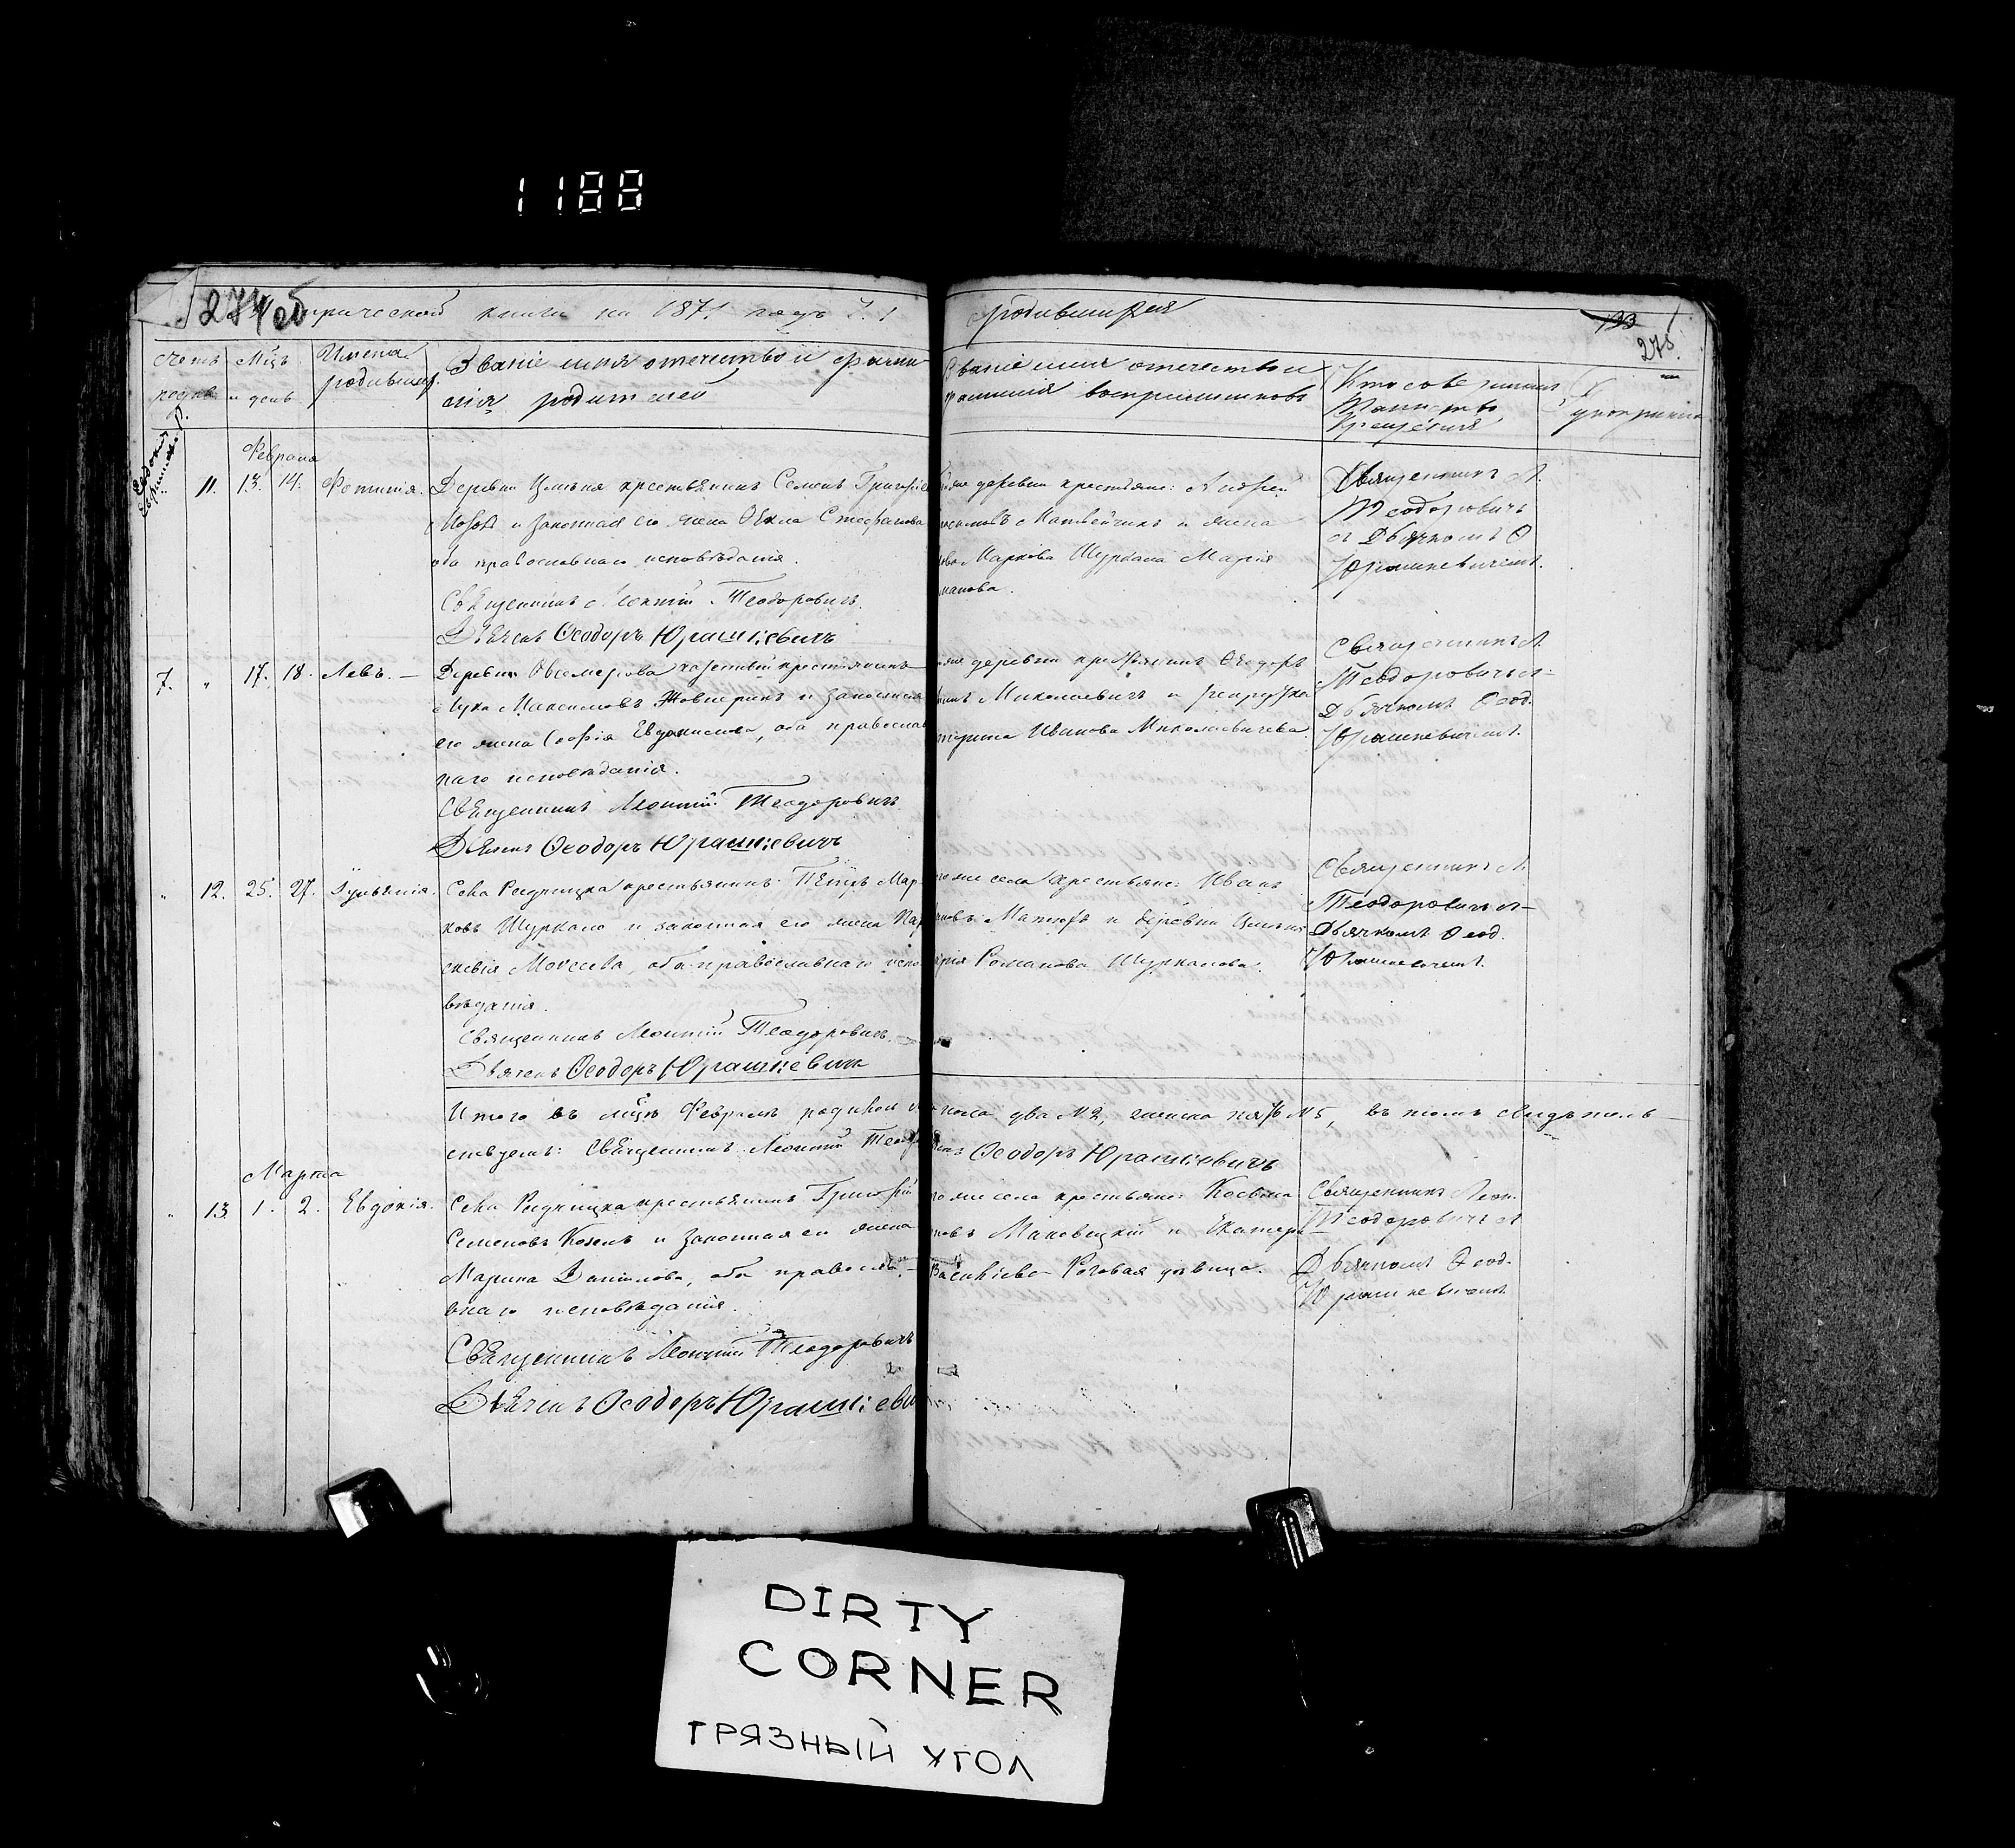 1188
274 об
метрической книги на 1871 годъ Ч. 1
о родившихся
193
275.
Счетъ родив.
Мцъ и день
Имена родивших.
Званіе имя отечество и фами-
лія родителей
Званіе имя отечество и
фамилія воспріемниковъ
Кто совершалъ
Таинство
Крещенія
Февраля
11. 13. 14. Фотинія.
Деревни Цмыня крестьянинъ Семенъ Григорьев
и законная его жена Ѳекла Стефанова
оба православнаго исповѣданія.
Священникъ Леонтій Теодоровичъ.
Дьячекъ Ѳеодоръ Юрашкевичъ
деревни крестьяне: Андрей
Матвейчикъ и жена
Маркова Шуркана Марія
манова.
Священникъ Л.
Теодоровичъ
съ Дьячкомъ Ѳ
Юрашкевичемъ.
7. " 17. 18. Левъ. —
Деревни крестьянинъ
Лука Максимовъ и законная
его жена Софія Евдокимова, оба православ
наго исповѣданія.
Священникъ Леонтій Теодоровичъ
Дьячекъ Ѳеодоръ Юрашкевичъ
деревни крестьянинъ Ѳеодоръ
Миколаевичъ и рекрутка
терина Иванова Миколаевичева.
Священникъ Л.
Теодоровичъ съ
Дьячкомъ Ѳеод.
Юрашкевичемъ.
" 12. 25. 27. Іуліанія.
Села Радчицка крестьянинъ Петръ Мар
ковъ Шуркало и законная его жена Пар
скевія Моѵсеева, оба православнаго испо
вѣданія.
Священникъ Леонтій Теодоровичъ. —
Дьячекъ Ѳеодоръ Юрашкевичъ
гоже села крестьяне: Иванъ
новъ и деревни Цмыня
арія Романова Шурканова.
Священникъ Л.
Теодоровичъ съ
Дьячкомъ Ѳеод.
Юрашкевичемъ.
Итого въ мцѣ Февралѣ родилось м пола два М 2, женска пять М 5, въ томъ свидѣтель-
ствуемъ: Священникъ Леонтій Теодор Ѳеодоръ Юрашкевичъ
Марта
" 13. 1. 2. Евдокія.
Села Радчицка крестьянинъ Григорій
Семеновъ Козелъ и законная его жена
Марина Данилова, оба православ-
наго исповѣданія.
Священникъ Леонтій Теодоровичъ
Дьячекъ Ѳеодоръ Юрашкеви
гоже села крестьяне: Косьма
новъ Маковецкій и Екатери-
Васильева Роговая дѣвица.
Священникъ Леон.
Теодоровичъ съ
Дьячкомъ Ѳеод.
Юрашкевичемъ
DIRTY
CORNER
ГРЯЗНЫЙ УГОЛ